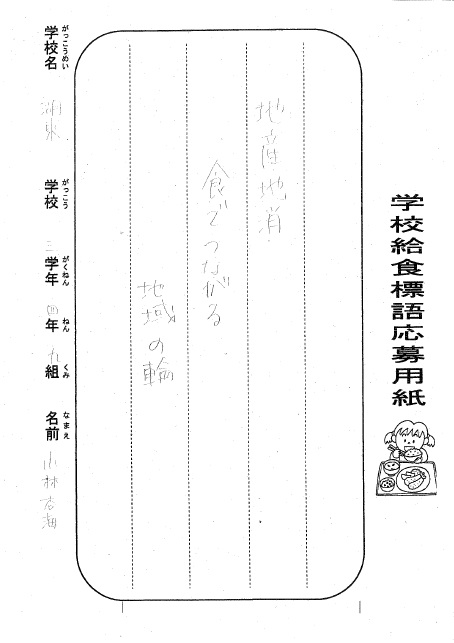 学校給食標語応募用紙
地産地消
食でつながる
地域の輪
がっこうめい
学校名
湘東
がっこう
学校
三
がくねん
学年
四
ねん
年
九
くみ
組
なまえ
名前
小林杏海